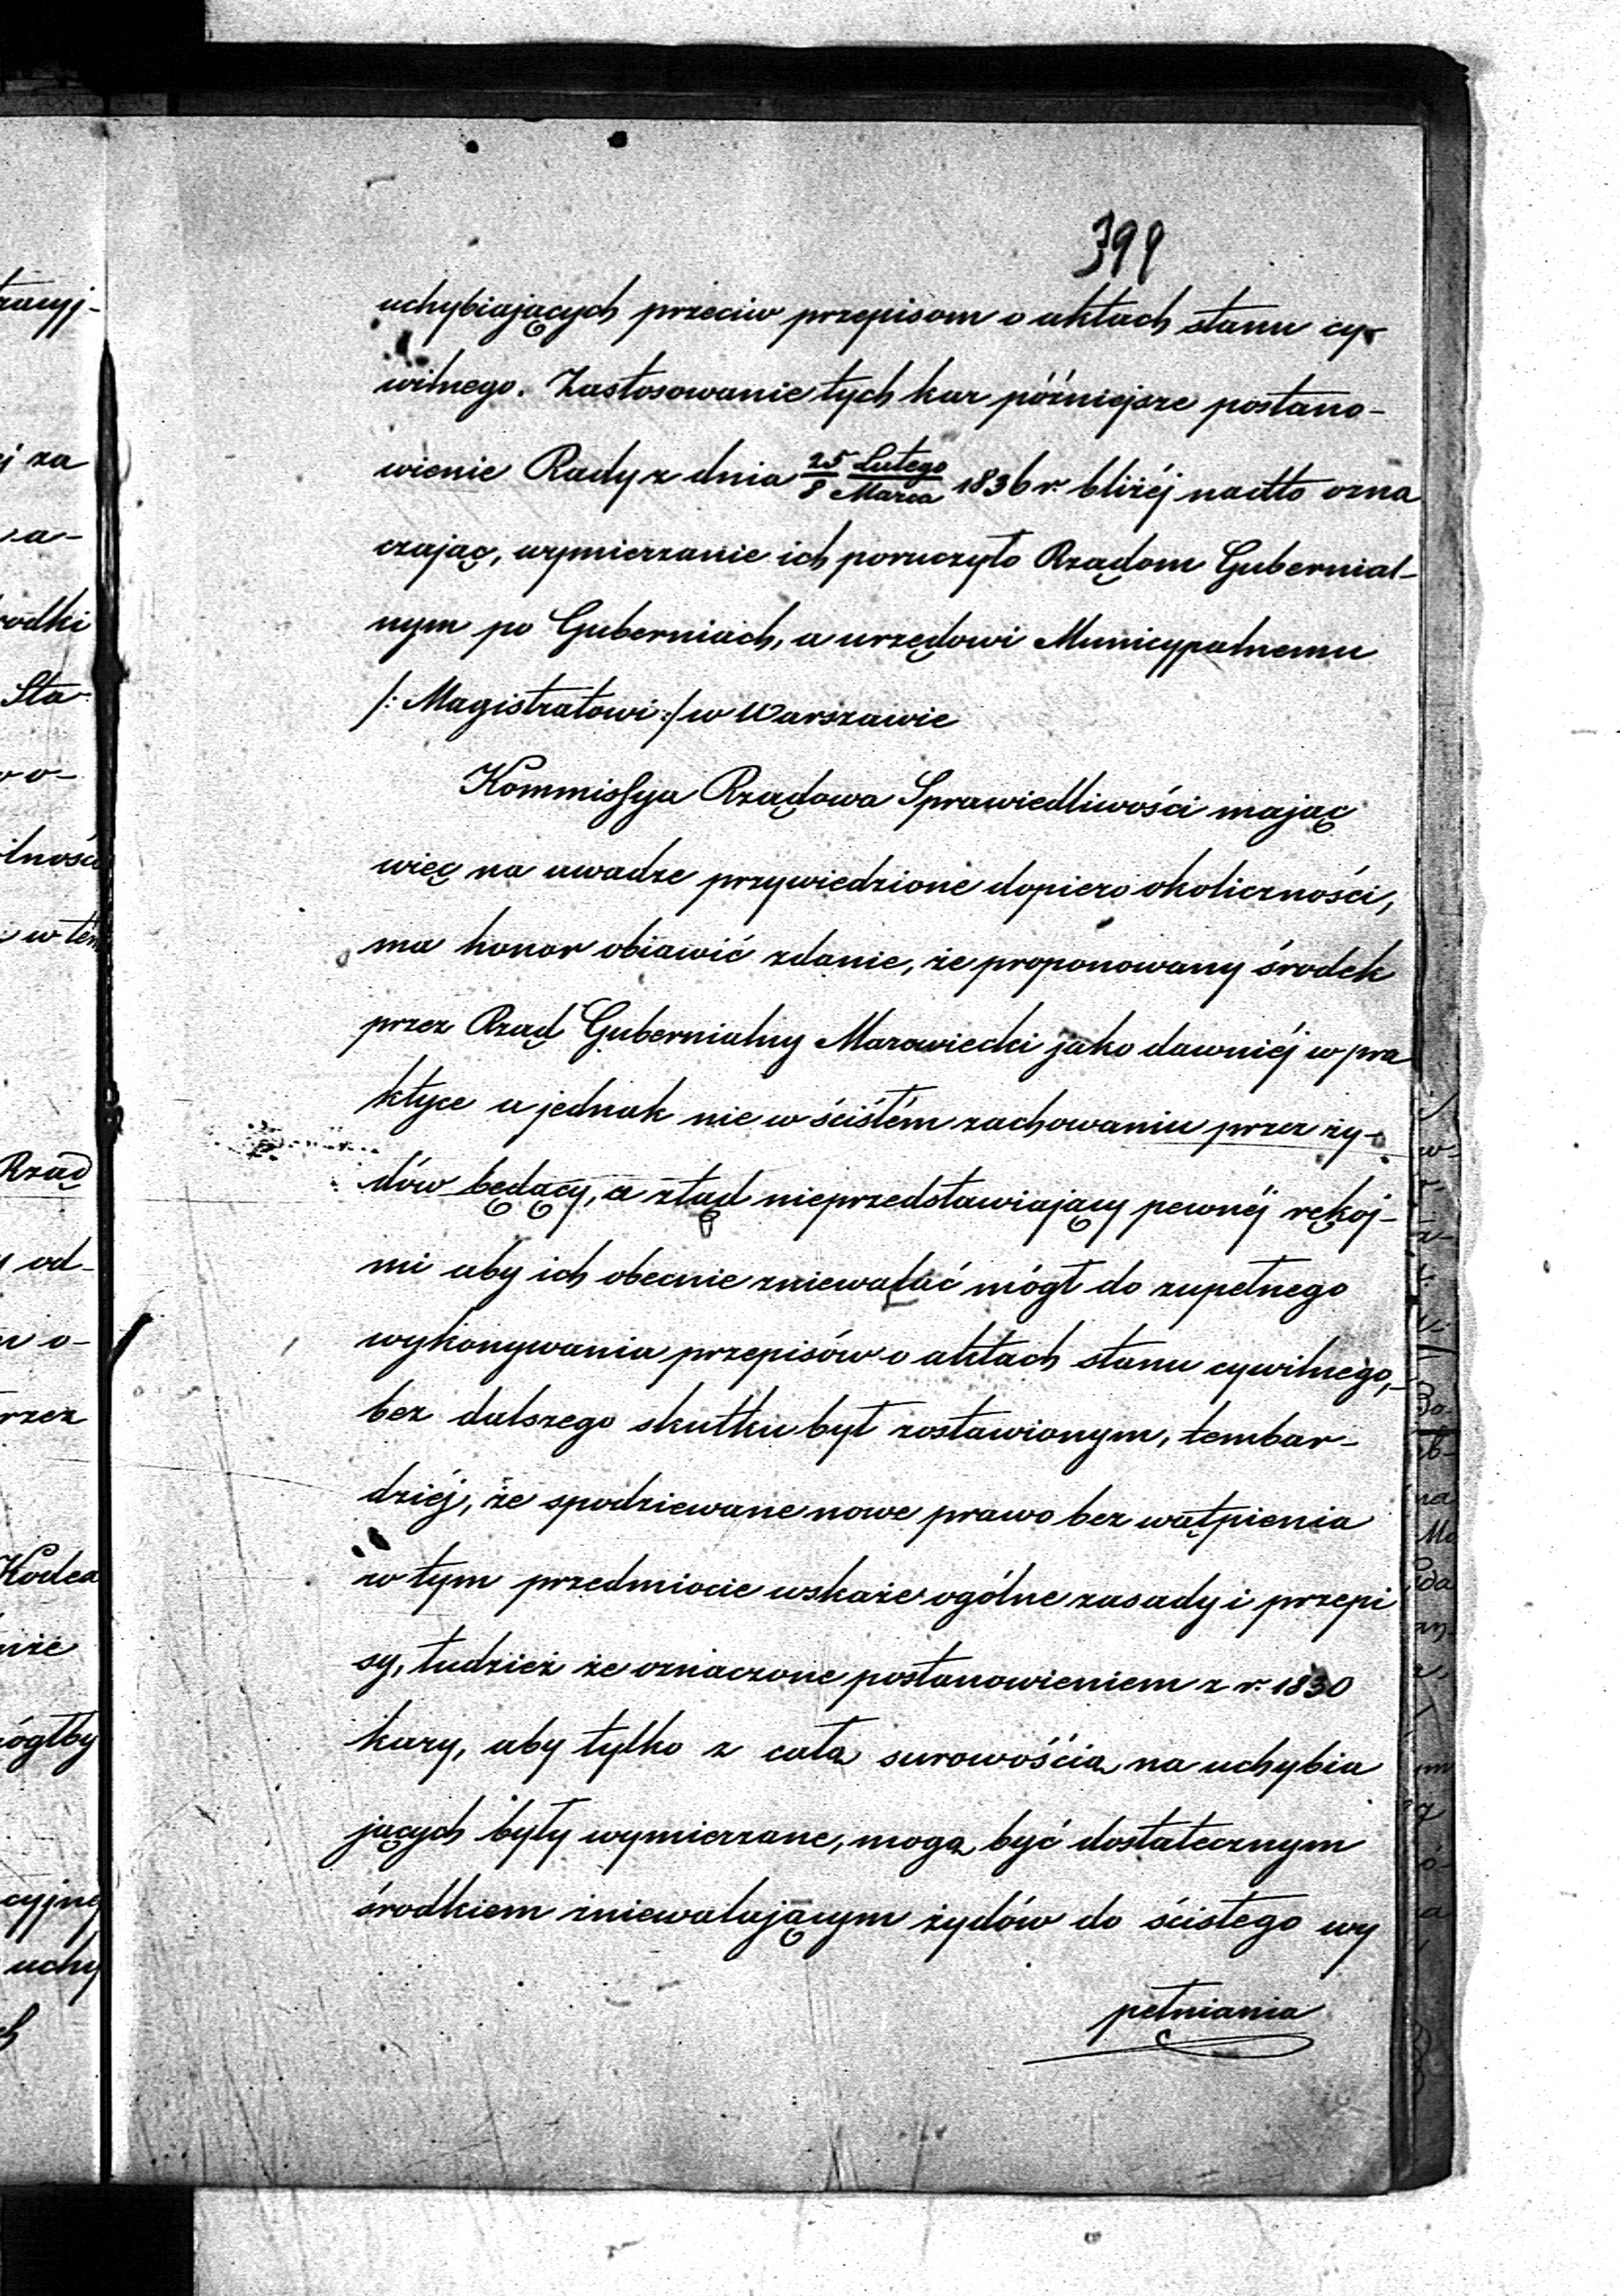 399
uchybiających przeciw przepisom o aktach stanu cy-
wilnego. Zastosowanie tych kar późniejsze postano-
wienie Rady z dnia 25 Lutego / 8 Marca 1836 r. bliżéj nadto ozna
czając, wymierzanie ich poruczyło Rządom Gubernial-
nym po Guberniach, a urzędowi Municypalnemu
/: Magistratowi :/ w Warszawie
Kommissya Rządowa Sprawiedliwości mając
więc na uwadze przywiedzione dopiero okoliczności,
ma honor obiawić zdanie, że proponowany środek
przez Rząd Gubernialny Mazowiecki jako dawniéj w pra
ktyce a jednak nie w ścisłém zachowaniu przez ży-
dów będący, a ztąd nieprzedstawiający pewnéj rękoj-
mi aby ich obecnie zniewalać mógł do zupełnego
wykonywania przepisów o aktach stanu cywilnego,-
bez dalszego skutku był zostawionym, tembar-
dziéj, że spodziewane nowe prawo bez wątpienia
w tym przedmiocie wskaże ogólne zasady i przepi
sy, tudzież że oznaczone postanowieniem z r. 1830
kary, aby tylko z całą surowością na uchybia
jących były wymierzane, mogą być dostatecznym
środkiem zniewalającym żydów do ścisłego wy
pełniania